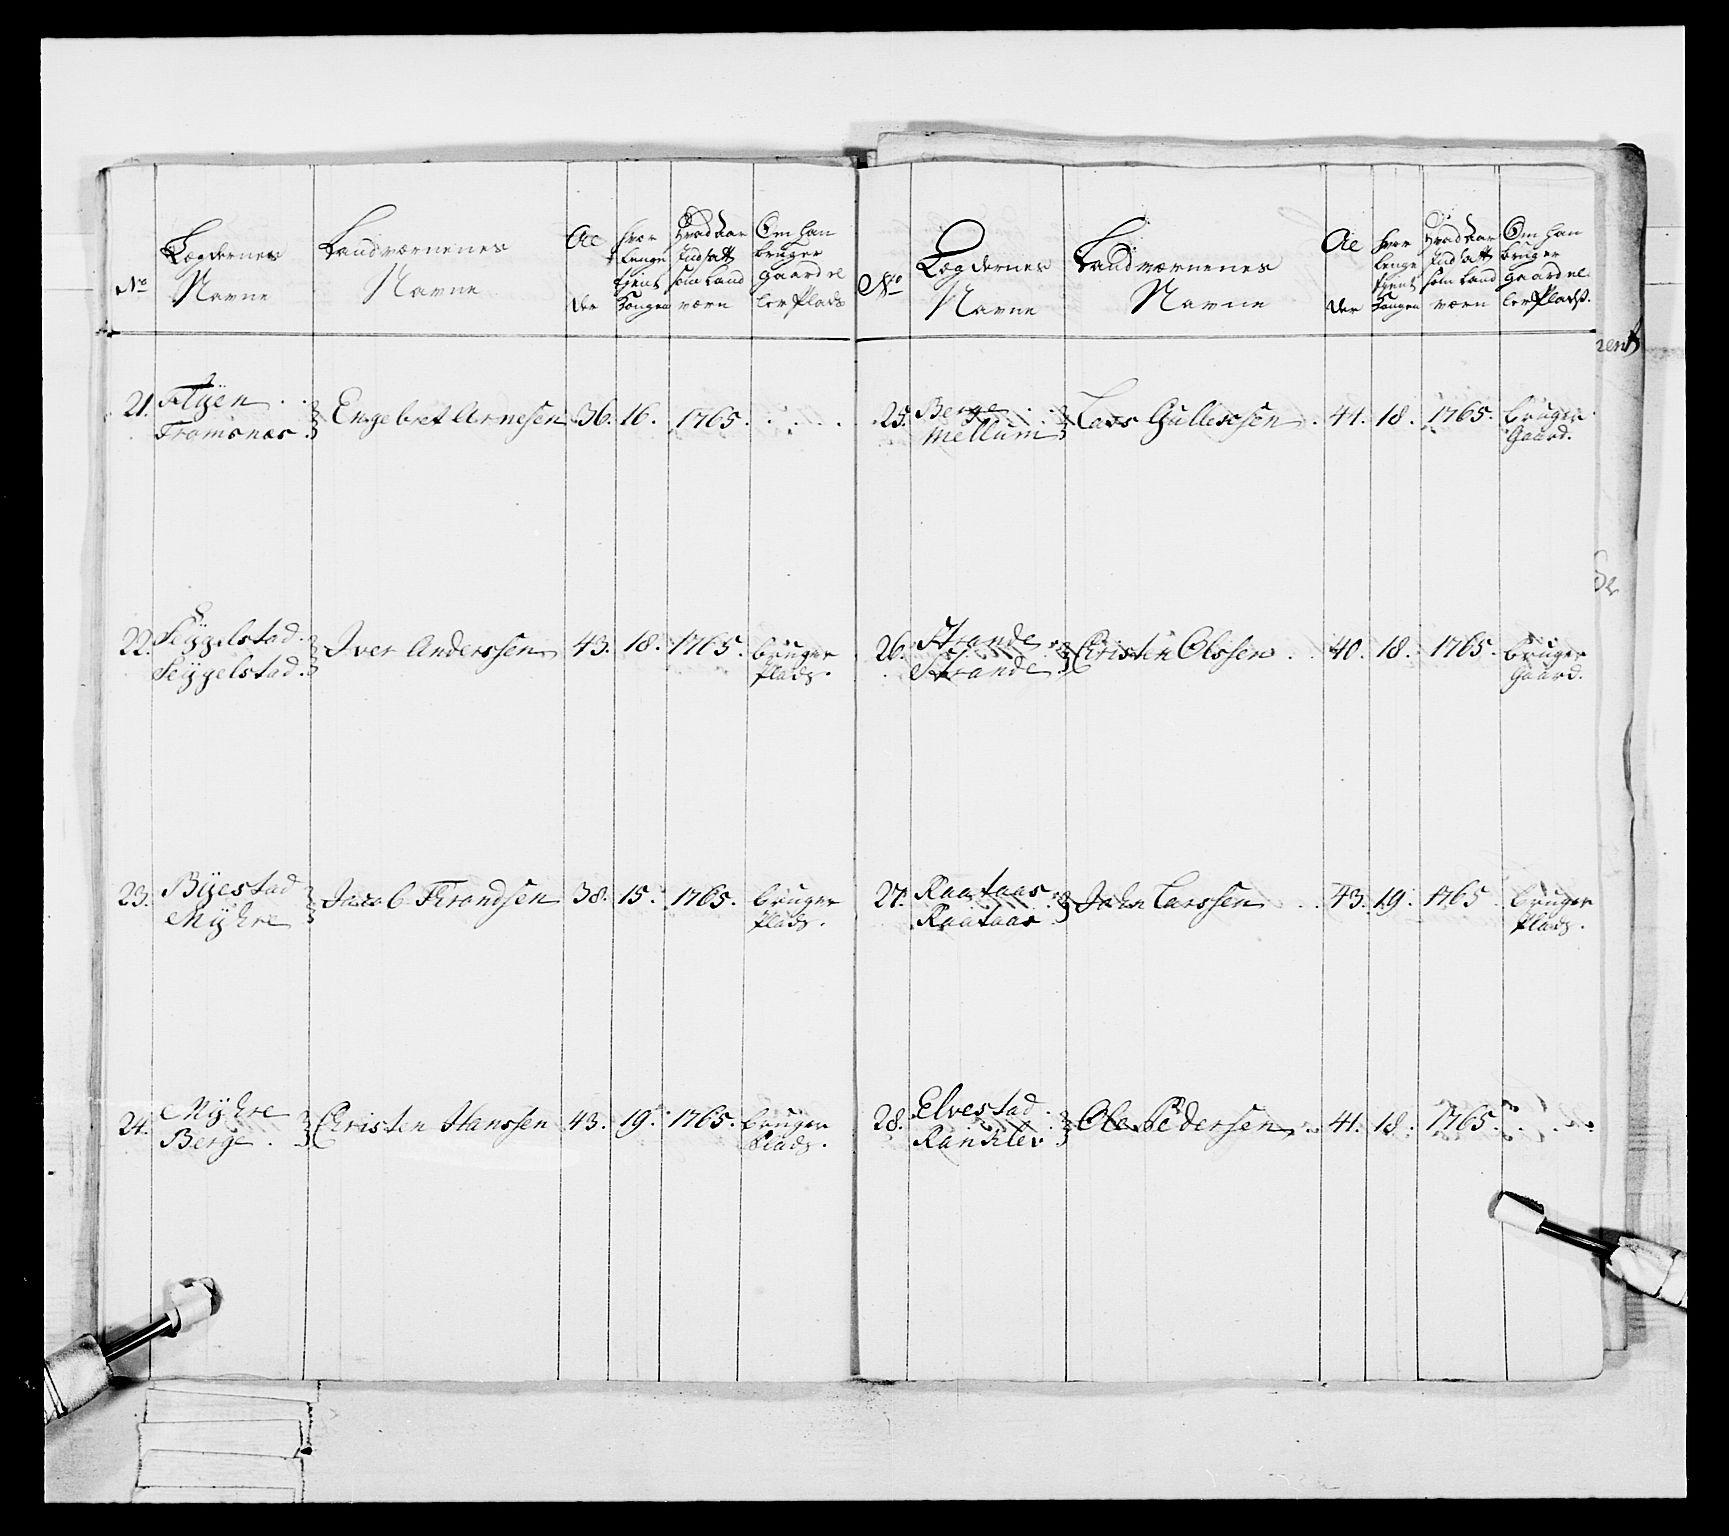 No
Lægdernes
Navne
Landværnenes
Navne
Al
der
Hvor
Lenge
tient
Kongen
Hvad Aar
Indsatt
som Land
værn
Om han
bruger
gaard el
ler Plads
21.
Flÿen
Tromsnæs
Engebret Arnesen
36. 16. 1765.
22.
Seÿgelstad.
Seÿgelstad.
Iver Anderssen
43. 18. 1765.
bruger
Plads.
23.
Bÿestad
Mÿhre
Jacob Trondsen
38. 15. 1765.
bruger
Plads.
24.
Mÿhre
Berge.
Christen Hanssen
43. 19. 1765.
bruger
Plads.
No
Lægdernes
Navne
Landværnenes
Navne
Al
der
Hvor
lenge
tient
Kongen
Hvad Aar
Indsatt
som Land
værn
Om han
bruger
gaard el
ler Plads.
25.
Berge
Mellum
Lars Gullessen.
41. 18. 1765.
bruger
Gaard.
26.
Strande
Strande
Christen Olssen
40. 18. 1765.
bruger
Gaard.
27.
Raataas
Raataas
John Larssen
43. 19. 1765
bruger
Plads.
28.
Elvestad
Ranklev
Ole Pedersen
41. 18. 1765.